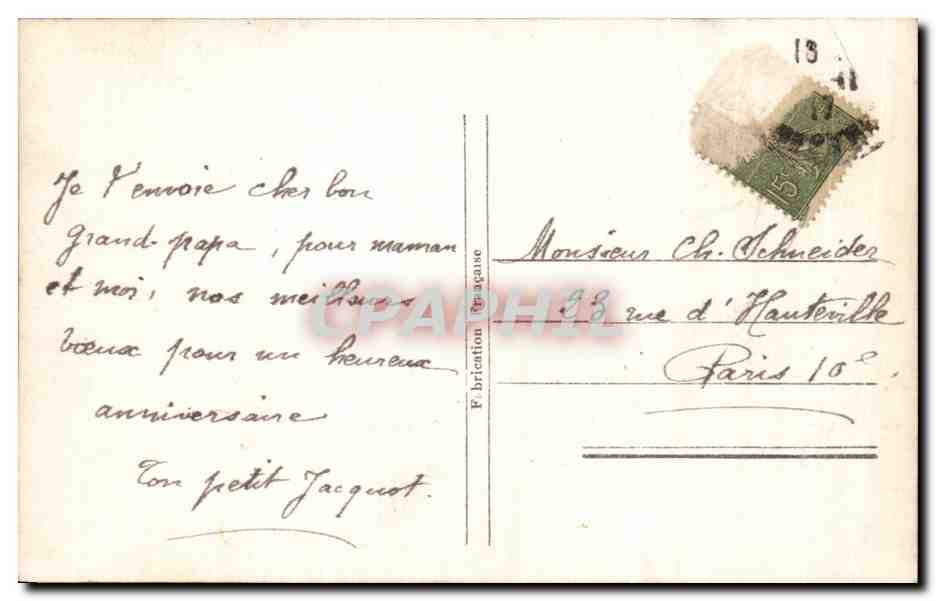 Je t'envoie cher bon
grand-papa, pour maman
et moi, nos meilleurs
vœux pour un heureux
anniversaire
Ton petit Jacquot.
Fabrication Française
15c
Monsieur Ch. Schneider
23 rue d'Hauteville
Paris 10e
CPAPHIL